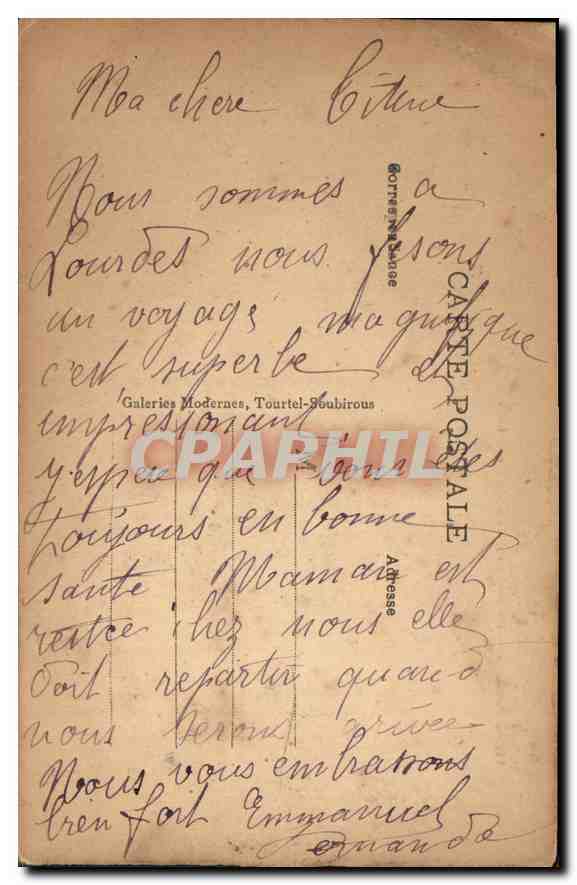 Ma chere
Nous sommes a
Lourdes nous fesons
un voyage magnifique
c'est superbe et
impressionant
y'espere que vous etes
toujours en bonne
sante Maman est
restee chez nous elle
doit repartir quand
nous serons arivee
Nous vous embrassons
bien fort Emmanuel
Correspondance
CARTE POSTALE
Adresse
Galeries Modernes, Tourtel-Soubirous
CPARHIL